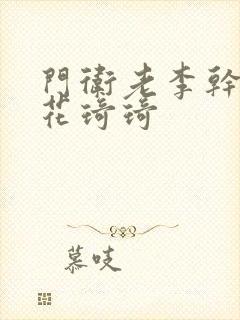 門衛老李幹
花琦琦
慕吱